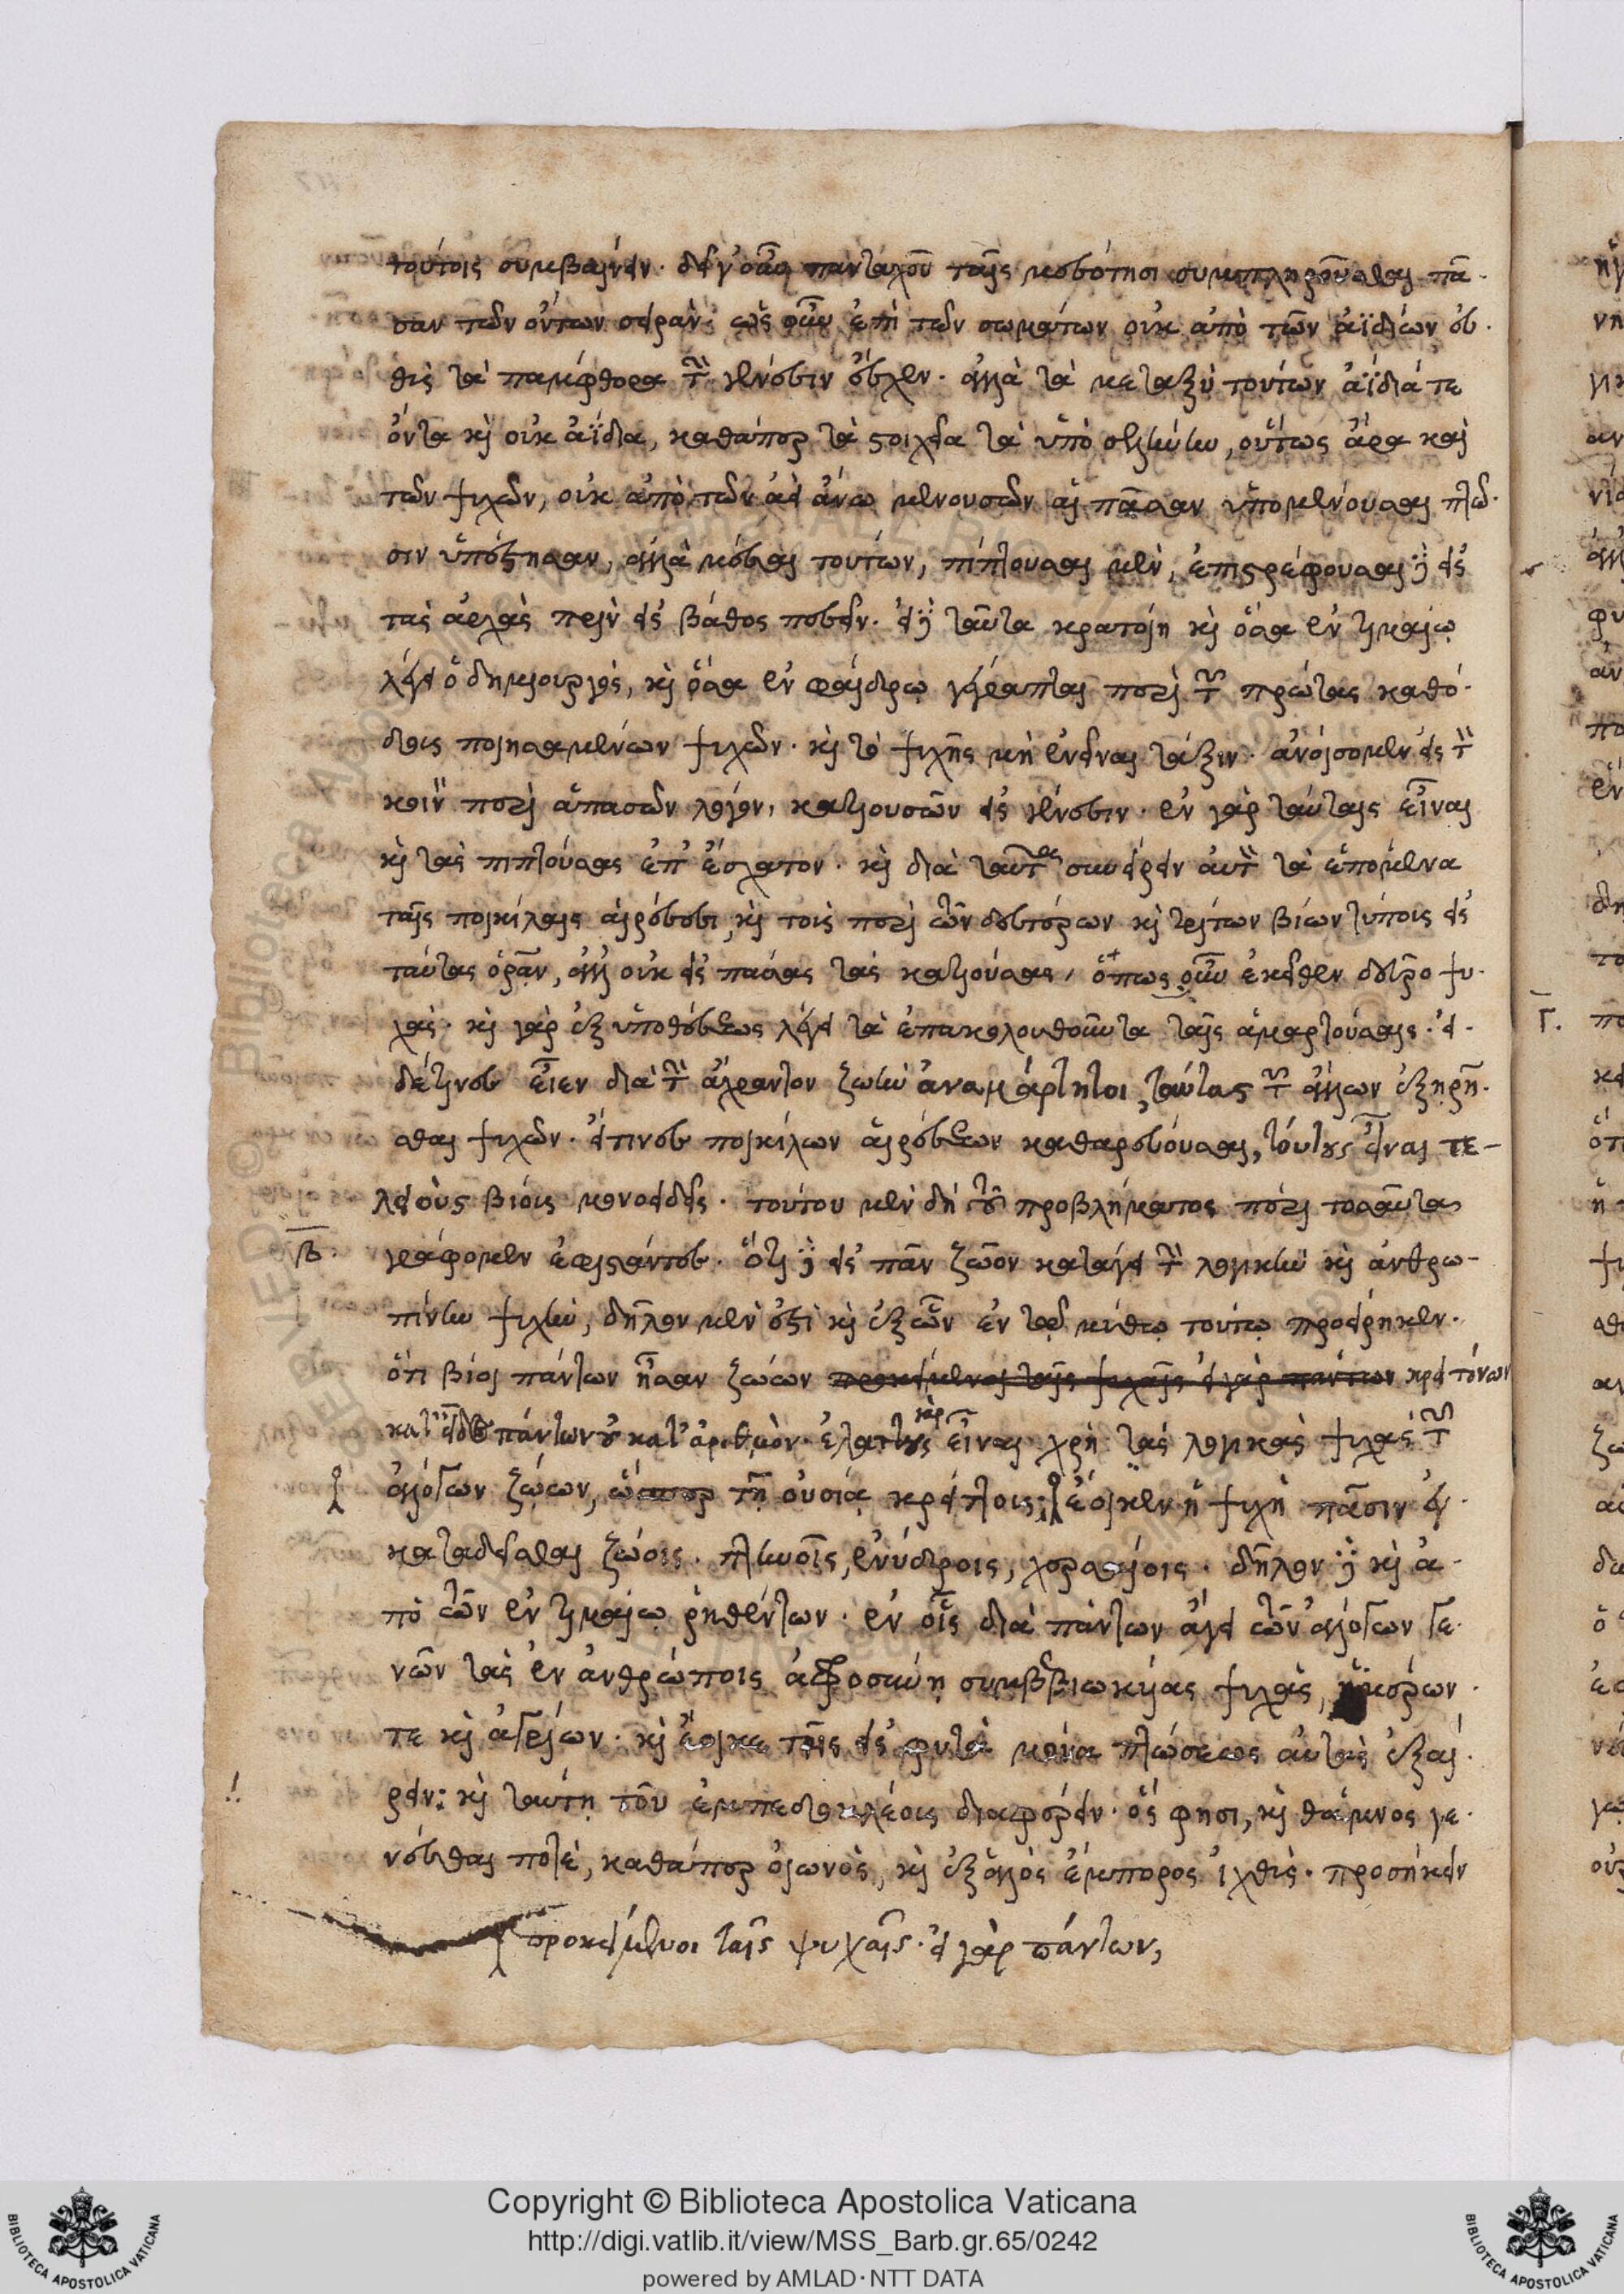 τούτοις συμβαίνειν. δεῖν οὖν πανταχοῦ ταῖς μεσότησι συμπληροῦσθαι πᾶ-
σαν τῶν ὄντων σειράν. ὡς οὖν ἐπὶ τῶν σωμάτων οὐκ ἀπὸ τῶν ἀϊδίων εὐ-
θὺς τὰ παμφθορα τὴν γένεσιν ἔσχεν. ἀλλὰ τὰ μεταξὺ τούτων ἀΐδιά τε
ὄντα καὶ οὐκ ἀΐδια, καθάπερ τὰ στοιχεῖα τὰ ὑπὸ σελήνην, οὕτως ἄρα καὶ
τῶν ψυχῶν, οὐκ ἀπὸ τῶν ἀεὶ ἄνω μενουσῶν αἱ πᾶσαν ὑπομένουσαι πτῶ-
σιν ὑπέστησαν, ἀλλὰ μέσαι τούτων, πίπτουσαι μὲν, ἐπιστρέφουσαι δὲ εἰς
τὰς ἀρχὰς πρὶν εἰς βάθος πεσεῖν. εἰ δὲ ταῦτα κρατοίη καὶ ὅσα ἐν τιμαίῳ
λέγει ὁ δημιουργὸς, καὶ ὅσα ἐν φαίδρῳ γέγραπται περὶ τῶν πρώτας καθό-
δους ποιησαμένων ψυχῶν. καὶ τὸ ψυχῆς μὴ ἐνεῖναι τάξιν. ἀνοίσομεν εἰς τὸν
κοινὸν περὶ ἁπασῶν λόγον, κατιουσῶν εἰς γένεσιν. ἐν γὰρ ταύταις εἶναι
καὶ τὰς πιπτούσας ἐπ' ἔσχατον. καὶ διὰ ταῦτα συνείρειν αὐτὸν τὰ ἑπόμενα
ταῖς ποικίλαις αἱρέσεσι, καὶ τοῖς περὶ τῶν δευτέρων καὶ τρίτων βίων τύποις εἰς
ταύτας ὁρᾶν, ἀλλ' οὐκ εἰς πάσας τὰς κατιούσας, ὅπως οὖν ἐκεῖθεν δεῦρο ψυ-
χάς. καὶ γὰρ ἐξ ὑποθέσεως λέγει τὰ ἐπακολουθοῦντα ταῖς ἁμαρτούσαις. εἰ
δέ τινες εἶεν διὰ τὴν ἄχραντον ζωὴν ἀναμάρτητοι, ταύτας τῶν ἄλλων ἐξῃρῆ-
σθαι ψυχῶν. εἴ τινες ποικίλων αἱρέσεων καθαρεύουσαι, τούτους εἶναι τε-
λείους βίους μονοειδεῖς. τούτου μὲν δὴ τοῦ προβλήματος πέρι τοσαῦτα
Β. γράφομεν ἐφιστάντες. ὅτι δὲ εἰς πᾶν ζῶον κατάγει τὴν λογικὴν καὶ ἀνθρω-
πίνην ψυχὴν, δῆλον μὲν ἐστὶ καὶ ἐξ ὧν ἐν τῷ μύθῳ τούτῳ προείρηκεν.
ὅτι βίοι πάντων ἦσαν ζώων προκείμενοι ταῖς ψυχαῖς εἰ γὰρ πάντων κρειττόνων
κατ' εἶδος πάντων καὶ κατ' ἀριθμὸν. ἐλάττους γὰρ εἶναι χρὴ τὰς λογικὰς ψυχὰς τῶν
ἀλόγων ζώων, ὥσπερ τῇ οὐσίᾳ κρείττους; ἔοικεν ἡ ψυχὴ πᾶσιν ἐγ-
καταδεῖσθαι ζώοις. πτηνοῖς, ἐνύδροις, χερσαίοις. δῆλον δὲ καὶ ἀ-
πὸ τῶν ἐν τιμαίῳ ῥηθέντων. ἐν οἷς διὰ πάντων ἄγει τῶν ἀλόγων γε-
νῶν τὰς ἐν ἀνθρώποις ἀφροσύνῃ συμβεβιωκυίας ψυχὰς, ἡμέρων
τε καὶ ἀγρίων. καὶ ἔοικε τῆς εἰς φυτὰ μόνα πτώσεως αὐτὰς ἐξαι-
ρεῖν; καὶ ταύτῃ τοῦ ἐμπεδοκλέους διαφέρειν. ὅς φησι, καὶ θάμνος γε-
νέσθαι ποτὲ, καθάπερ οἰωνὸς, καὶ ἐξ ἁλὸς ἔμπορος ἰχθύς. προσήκειν
προκείμενοι ταῖς ψυχαῖς. εἰ γὰρ πάντων,
Copyright © Biblioteca Apostolica Vaticana
http://digi.vatlib.it/view/MSS_Barb.gr.65/0242
powered by AMLAD·NTT DATA